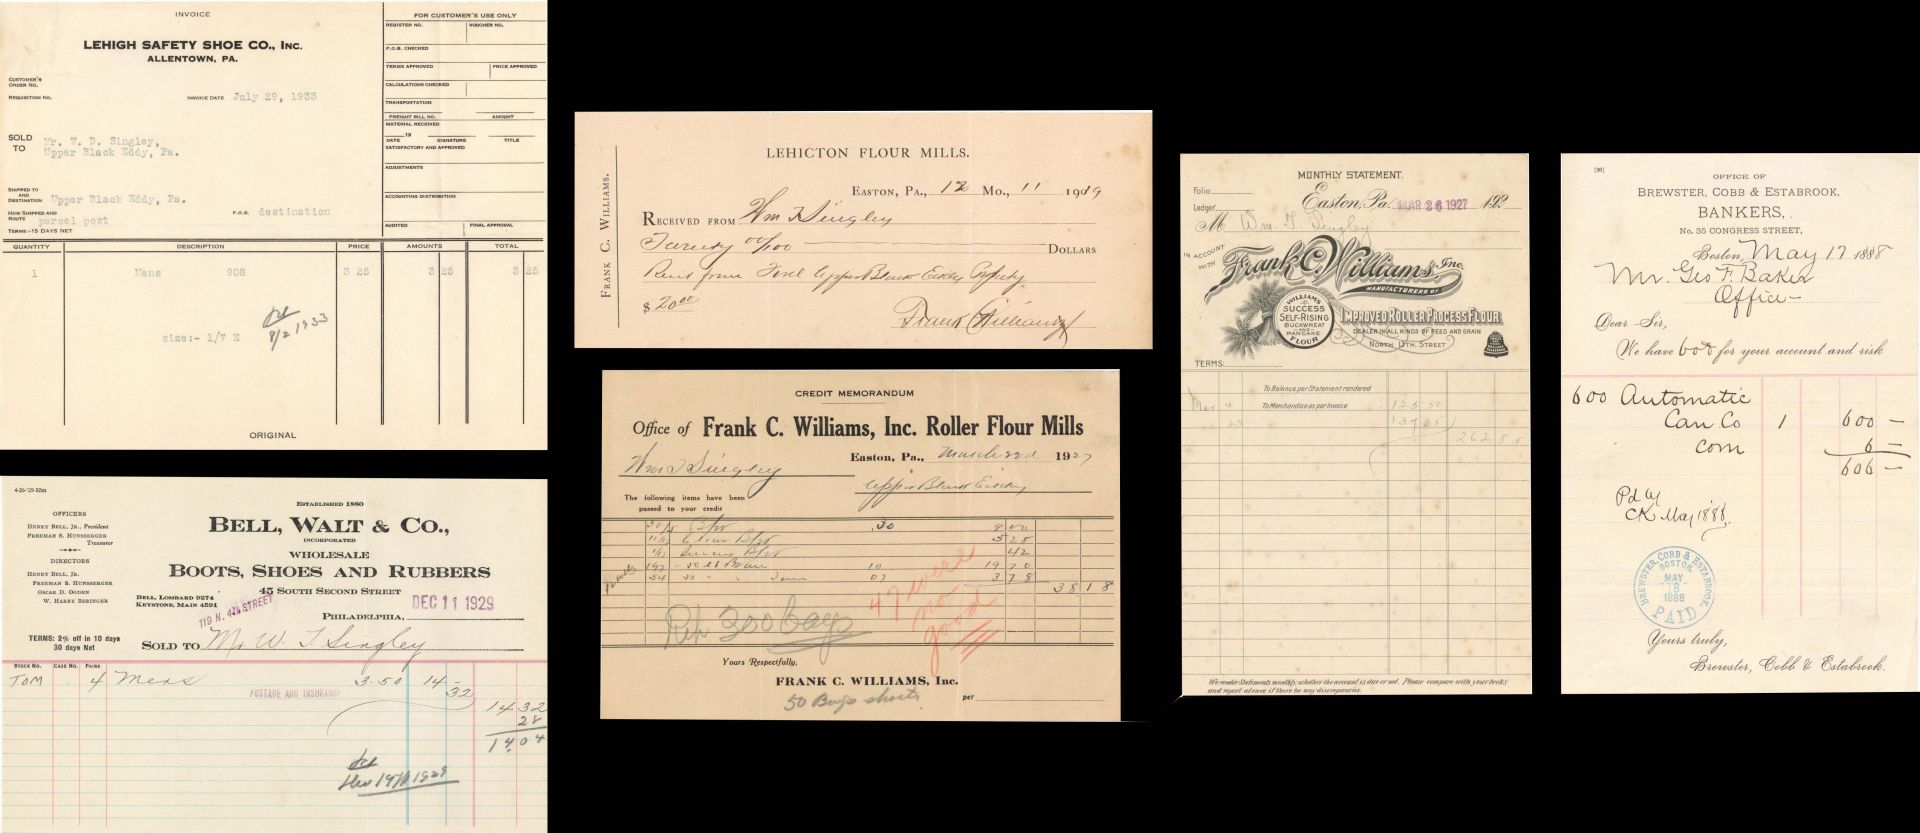 INVOICE
LEHIGH SAFETY SHOE CO., INC.
ALLENTOWN, PA.
CUSTOMER'S
ORDER NO.
REQUISITION NO.
INVOICE DATE July 29, 1933
SOLD
TO
Mr. W. D. Singley,
Upper Black Eddy, Pa.
SHIPPED TO
AND
DESTINATION Upper Black Eddy, Pa.
HOW SHIPPED AND
ROUTE parcel post
F.O.B. destination
TERMS:-15 DAYS NET
FOR CUSTOMER'S USE ONLY
REGISTER NO. VOUCHER NO.
F.O.B. CHECKED
TERMS APPROVED PRICE APPROVED
CALCULATIONS CHECKED
TRANSPORTATION
FREIGHT BILL NO. AMOUNT
MATERIAL RECEIVED
19
DATE SIGNATURE TITLE
SATISFACTORY AND APPROVED
ADJUSTMENTS
ACCOUNTING DISTRIBUTION
AUDITED FINAL APPROVAL
QUANTITY DESCRIPTION PRICE AMOUNTS TOTAL
1 Mens 908 3 25 3 25 3 25
8/2 1933
size:- 1/7 E
ORIGINAL
4-26-'29-52m
OFFICERS
HENRY BELL, JR., President
FREEMAN S. HUNSBERGER
Treasurer
DIRECTORS
HENRY BELL, JR.
FREEMAN S. HUNSBERGER
OSCAR D. OGDEN
W. HARRY BERINGER
ESTABLISHED 1880
BELL, WALT & CO.,
INCORPORATED
WHOLESALE
BOOTS, SHOES AND RUBBERS
45 SOUTH SECOND STREET
BELL, LOMBARD 9274
KEYSTONE, MAIN 4591
119 N. 4th STREET
DEC 11 1929
PHILADELPHIA,
TERMS: 2% off in 10 days
30 days Net
SOLD TO Mr W. T. Singley
STOCK NO. CASE NO. PAIRS
TOM 4 Mens 3.50 14 -
POSTAGE AND INSURANCE 32
14 32
28
14.04
1929
LEHICTON FLOUR MILLS.
FRANK C. WILLIAMS.
EASTON, PA., 12 MO., 11 1919
RECEIVED FROM Wm T Singley
Twenty 00/100 DOLLARS
Rent from Upper Black Eddy Property
$ 20.00
Frank C Williams
CREDIT MEMORANDUM
Office of Frank C. Williams, Inc. Roller Flour Mills
Easton, Pa., March 22d 1927
Wm T Singley
Upper Black Eddy
The following items have been
passed to your credit
.30 9 00
5 28
42
197 10 19 70
54 07 3 78
38 18
Rtn 300 bags
47 were
no
good
Yours Respectfully,
FRANK C. WILLIAMS, Inc.
per
50 Bags short
MONTHLY STATEMENT.
Folio
Ledger
Easton, Pa. MAR 26 1927 192
M Wm. T. Singley
IN ACCOUNT
WITH
Frank C. Williams, Inc.
MANUFACTURERS OF
IMPROVED ROLLER PROCESS FLOUR
WILLIAMS
SUCCESS
SELF-RISING
BUCKWHEAT
AND
PANCAKE
FLOUR
DEALER IN ALL KINDS OF FEED AND GRAIN
NORTH 13TH. STREET
TERMS:
To Balance per Statement rendered
Mar 4 To Merchandise as per Invoice 125 50
137 35
262 85
We render Statements monthly, whether the account is due or not. Please compare with your books
and report at once if there be any discrepancies.
[20]
OFFICE OF
BREWSTER, COBB & ESTABROOK,
BANKERS,
No. 35 CONGRESS STREET,
Boston, May 17 1888
Mr. Geo F. Baker
Office -
Dear Sir,
We have bot for your account and risk
600 Automatic
Can Co 1 600 -
com 6 -
606 -
Pd by
CK May 1888.
BREWSTER, COBB & ESTABROOK.
BOSTON.
MAY
18
1888
PAID
Yours truly,
Brewster, Cobb & Estabrook.